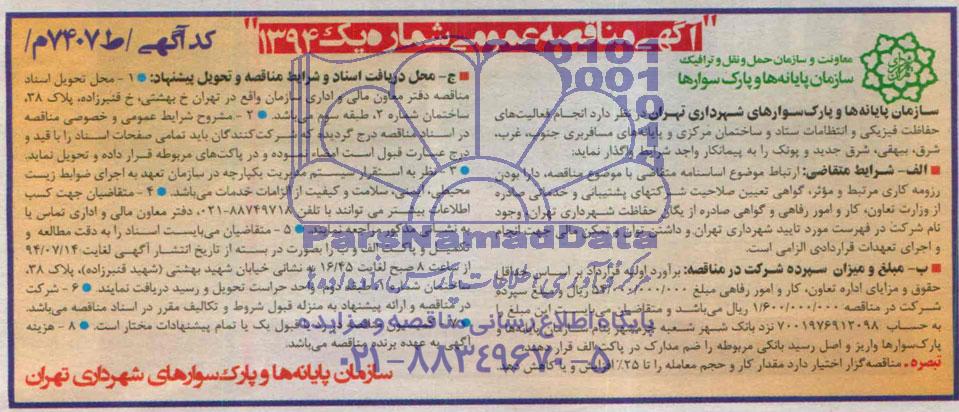 "آگهی مناقصه عمومی شماره یک ۱۳۹۴"
کد آگهی /ط۷۴۰۷م/
معاونت و سازمان حمل و نقل و ترافیک
سازمان پایانه‌ها و پارک سوارها
سازمان پایانه‌ها و پارک‌سوارهای شهرداری تهران در نظر دارد انجام فعالیت‌های
حفاظت فیزیکی و انتظامات ستاد و ساختمان مرکزی و پایانه‌های مسافربری جنوب، غرب،
شرق، بیهقی، شرق جدید و پونک را به پیمانکار واجد شرایط واگذار نماید:
■ الف- شرایط متقاضی: ارتباط موضوع اساسنامه متقاضی با موضوع مناقصه، دارا بودن
رزومه کاری مرتبط و مؤثر، گواهی تعیین صلاحیت شرکتهای پشتیبانی و خدماتی صادره
از وزارت تعاون، کار و امور رفاهی و گواهی صادره از یگان حفاظت شهرداری تهران، وجود
نام شرکت در فهرست مورد تایید شهرداری تهران و داشتن توان و تمکن مالی جهت انجام
و اجرای تعهدات قراردادی الزامی است.
■ ب- مبلغ و میزان سپرده شرکت در مناقصه: برآورد اولیه قرارداد بر اساس حداقل
حقوق و مزایای اداره تعاون، کار و امور رفاهی مبلغ ریال و مبلغ سپرده
شرکت در مناقصه ۱/۶۰۰/۰۰۰/۰۰۰ ریال می‌باشد و متقاضیان می‌بایست این مبلغ را
به حساب ۷۰۰۱۹۷۶۹۱۳۰۹۸ نزد بانک شهر شعبه بنام سازمان پایانه‌ها و
پارک‌سوارها واریز و اصل رسید بانکی مربوطه را ضم مدارک در پاکت الف قرار دهند.
تبصره- مناقصه‌گزار اختیار دارد مقدار کار و حجم معامله را تا ۲۵٪ افزایش و یا کاهش دهد.
■ ج- محل دریافت اسناد و شرایط مناقصه و تحویل پیشنهاد: ● ۱- محل تحویل اسناد
مناقصه دفتر معاون مالی و اداری سازمان واقع در تهران خ بهشتی، خ قنبرزاده، پلاک ۳۸،
ساختمان شماره ۲، طبقه سوم می‌باشد. ● ۲- مشروح شرایط عمومی و خصوصی مناقصه
در اسناد مناقصه درج گردیده که شرکت‌کنندگان باید تمامی صفحات اسناد را با قید و
درج عبارت قبول است امضاء نموده و در پاکت‌های مربوطه قرار داده و تحویل نماید.
● ۳- نظر به استقرار سیستم مدیریت یکپارچه در سازمان تعهد به اجرای ضوابط زیست
محیطی، ایمنی، سلامت و کیفیت از الزامات خدمات می‌باشد. ● ۴- متقاضیان جهت کسب
اطلاعات بیشتر می توانند با تلفن ۸۸۷۴۹۷۱۸-۰۲۱، دفتر معاون مالی و اداری تماس یا
به نشانی مذکور مراجعه نمایند. ● ۵- متقاضیان می‌بایست اسناد را به دقت مطالعه و
تکمیل و پاکت الف و ب را بصورت در بسته از تاریخ انتشار آگهی لغایت ۹۴/۰۷/۱۴
از ساعت ۸ صبح لغایت ۱۶/۴۵ به نشانی خیابان شهید بهشتی (شهید قنبرزاده)، پلاک ۳۸،
ساختمان شماره واحد حراست تحویل و رسید دریافت نمایند. ● ۶- شرکت
در مناقصه و ارائه پیشنهاد به منزله قبول شروط و تکالیف مقرر در اسناد مناقصه می‌باشد.
● ۷- قبول یک یا تمام پیشنهادات مختار است. ● ۸- هزینه
آگهی به عهده برنده مناقصه می‌باشد.
سازمان پایانه‌ها و پارک‌سوارهای شهرداری تهران
ParsNamadData
پایگاه اطلاع رسانی مناقصه و مزایده
۰۲۱-۸۸۳۴۹۶۷۰-۵